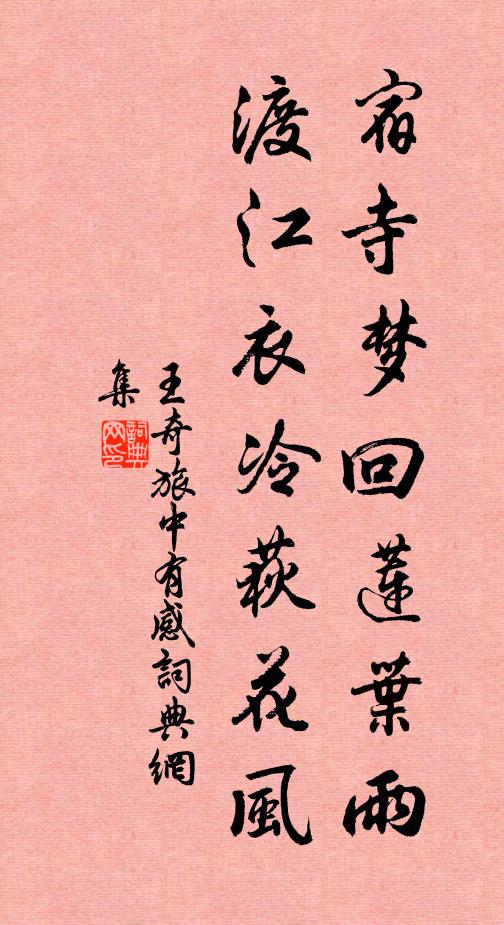 宿寺梦回蓮葉雨
渡江衣冷荻花風
王奇旅中有感詞典網
集
詞典网印